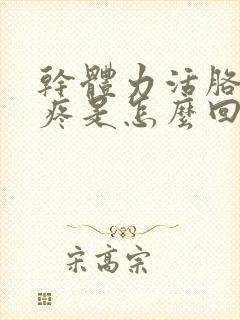 幹體力活胳
疼是怎麼回
宋高宗